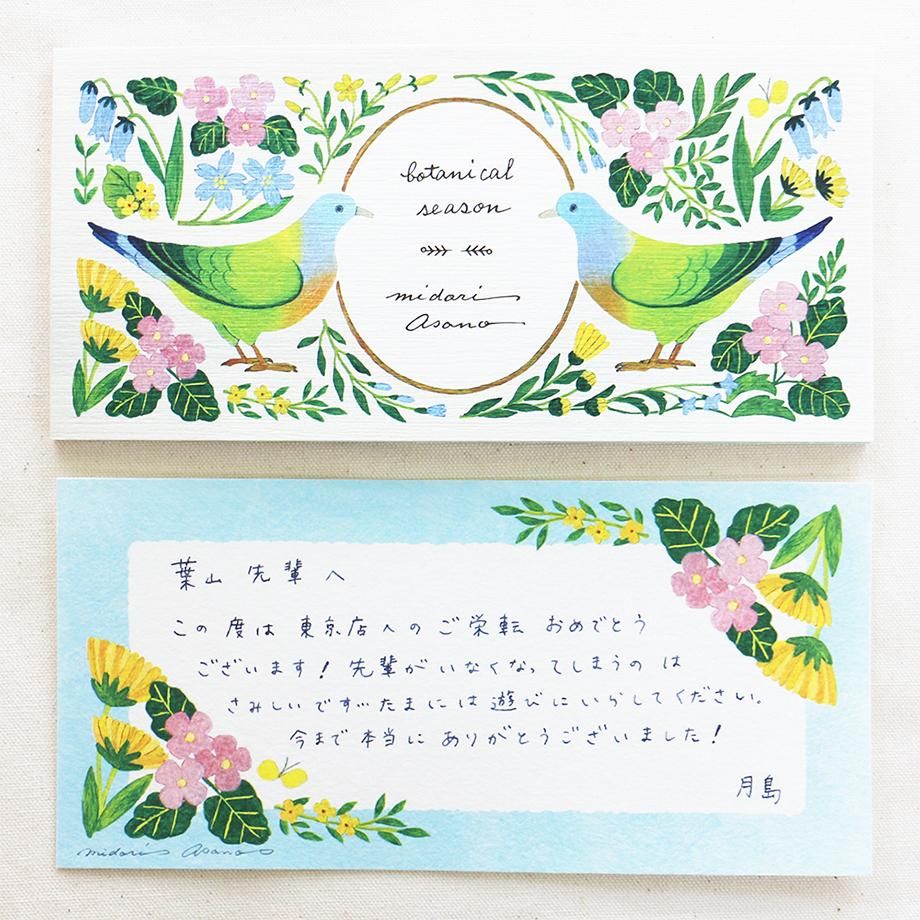 botanical
season
midori
asano
葉山 先輩へ
この度は 東京店への ご栄転 おめでとう
ございます! 先輩がいなくなってしまうのは
さみしいです… たまには 遊びにいらしてください。
今まで 本当に ありがとうございました!
月島
midori asano